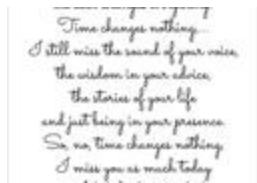 Time changes nothing...
I still miss the sound of your voice,
the wisdom in your advice,
the stories of your life
and just being in your presence.
So, no, time changes nothing,
I miss you as much today